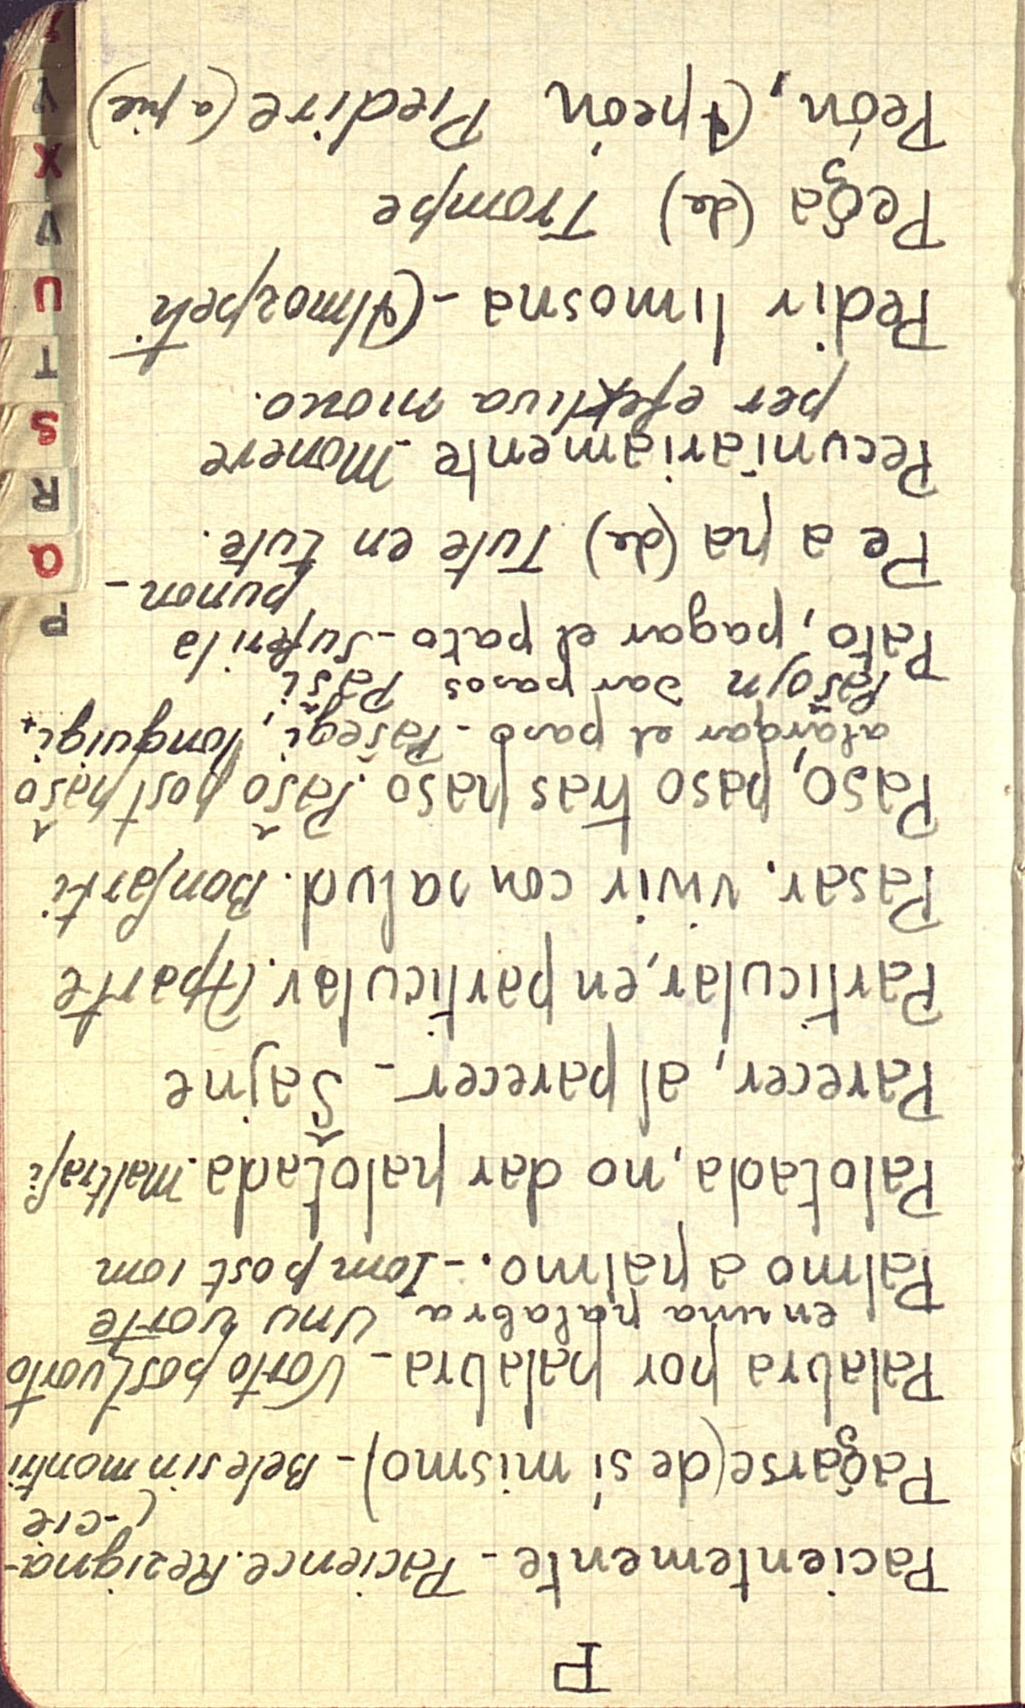 P
Pacientemente - Pacience. Rezigna-
(-cie
Pagarse (de sí mismo) - Bele sin montri
Palabra por palabra - Vorto post vorto
en una palabra Unu vorte
Palmo a palmo. - Iom post iom
Palotada, no dar palotada. Maltrafi
Parecer, al parecer - Ŝajne
Particular, en particular. Aparte
Pasar. vivir con salud. Bonfarti
Paso, paso tras paso. Paŝo post paŝo
alargar el paso - Paŝegi, longuigi
Paŝojn dar pasos Paŝi
Pato, pagar el pato - Suferi la
punon -
Pe a pa (de) Tute en tute.
Pecuniariamente - Monere
per efektiva mono.
Pedir limosna - (Almozpeti
Pega (de) Trompe
Peón, (A peón Piedire (a pie)
P
Q
R
S
T
U
V
X
Y